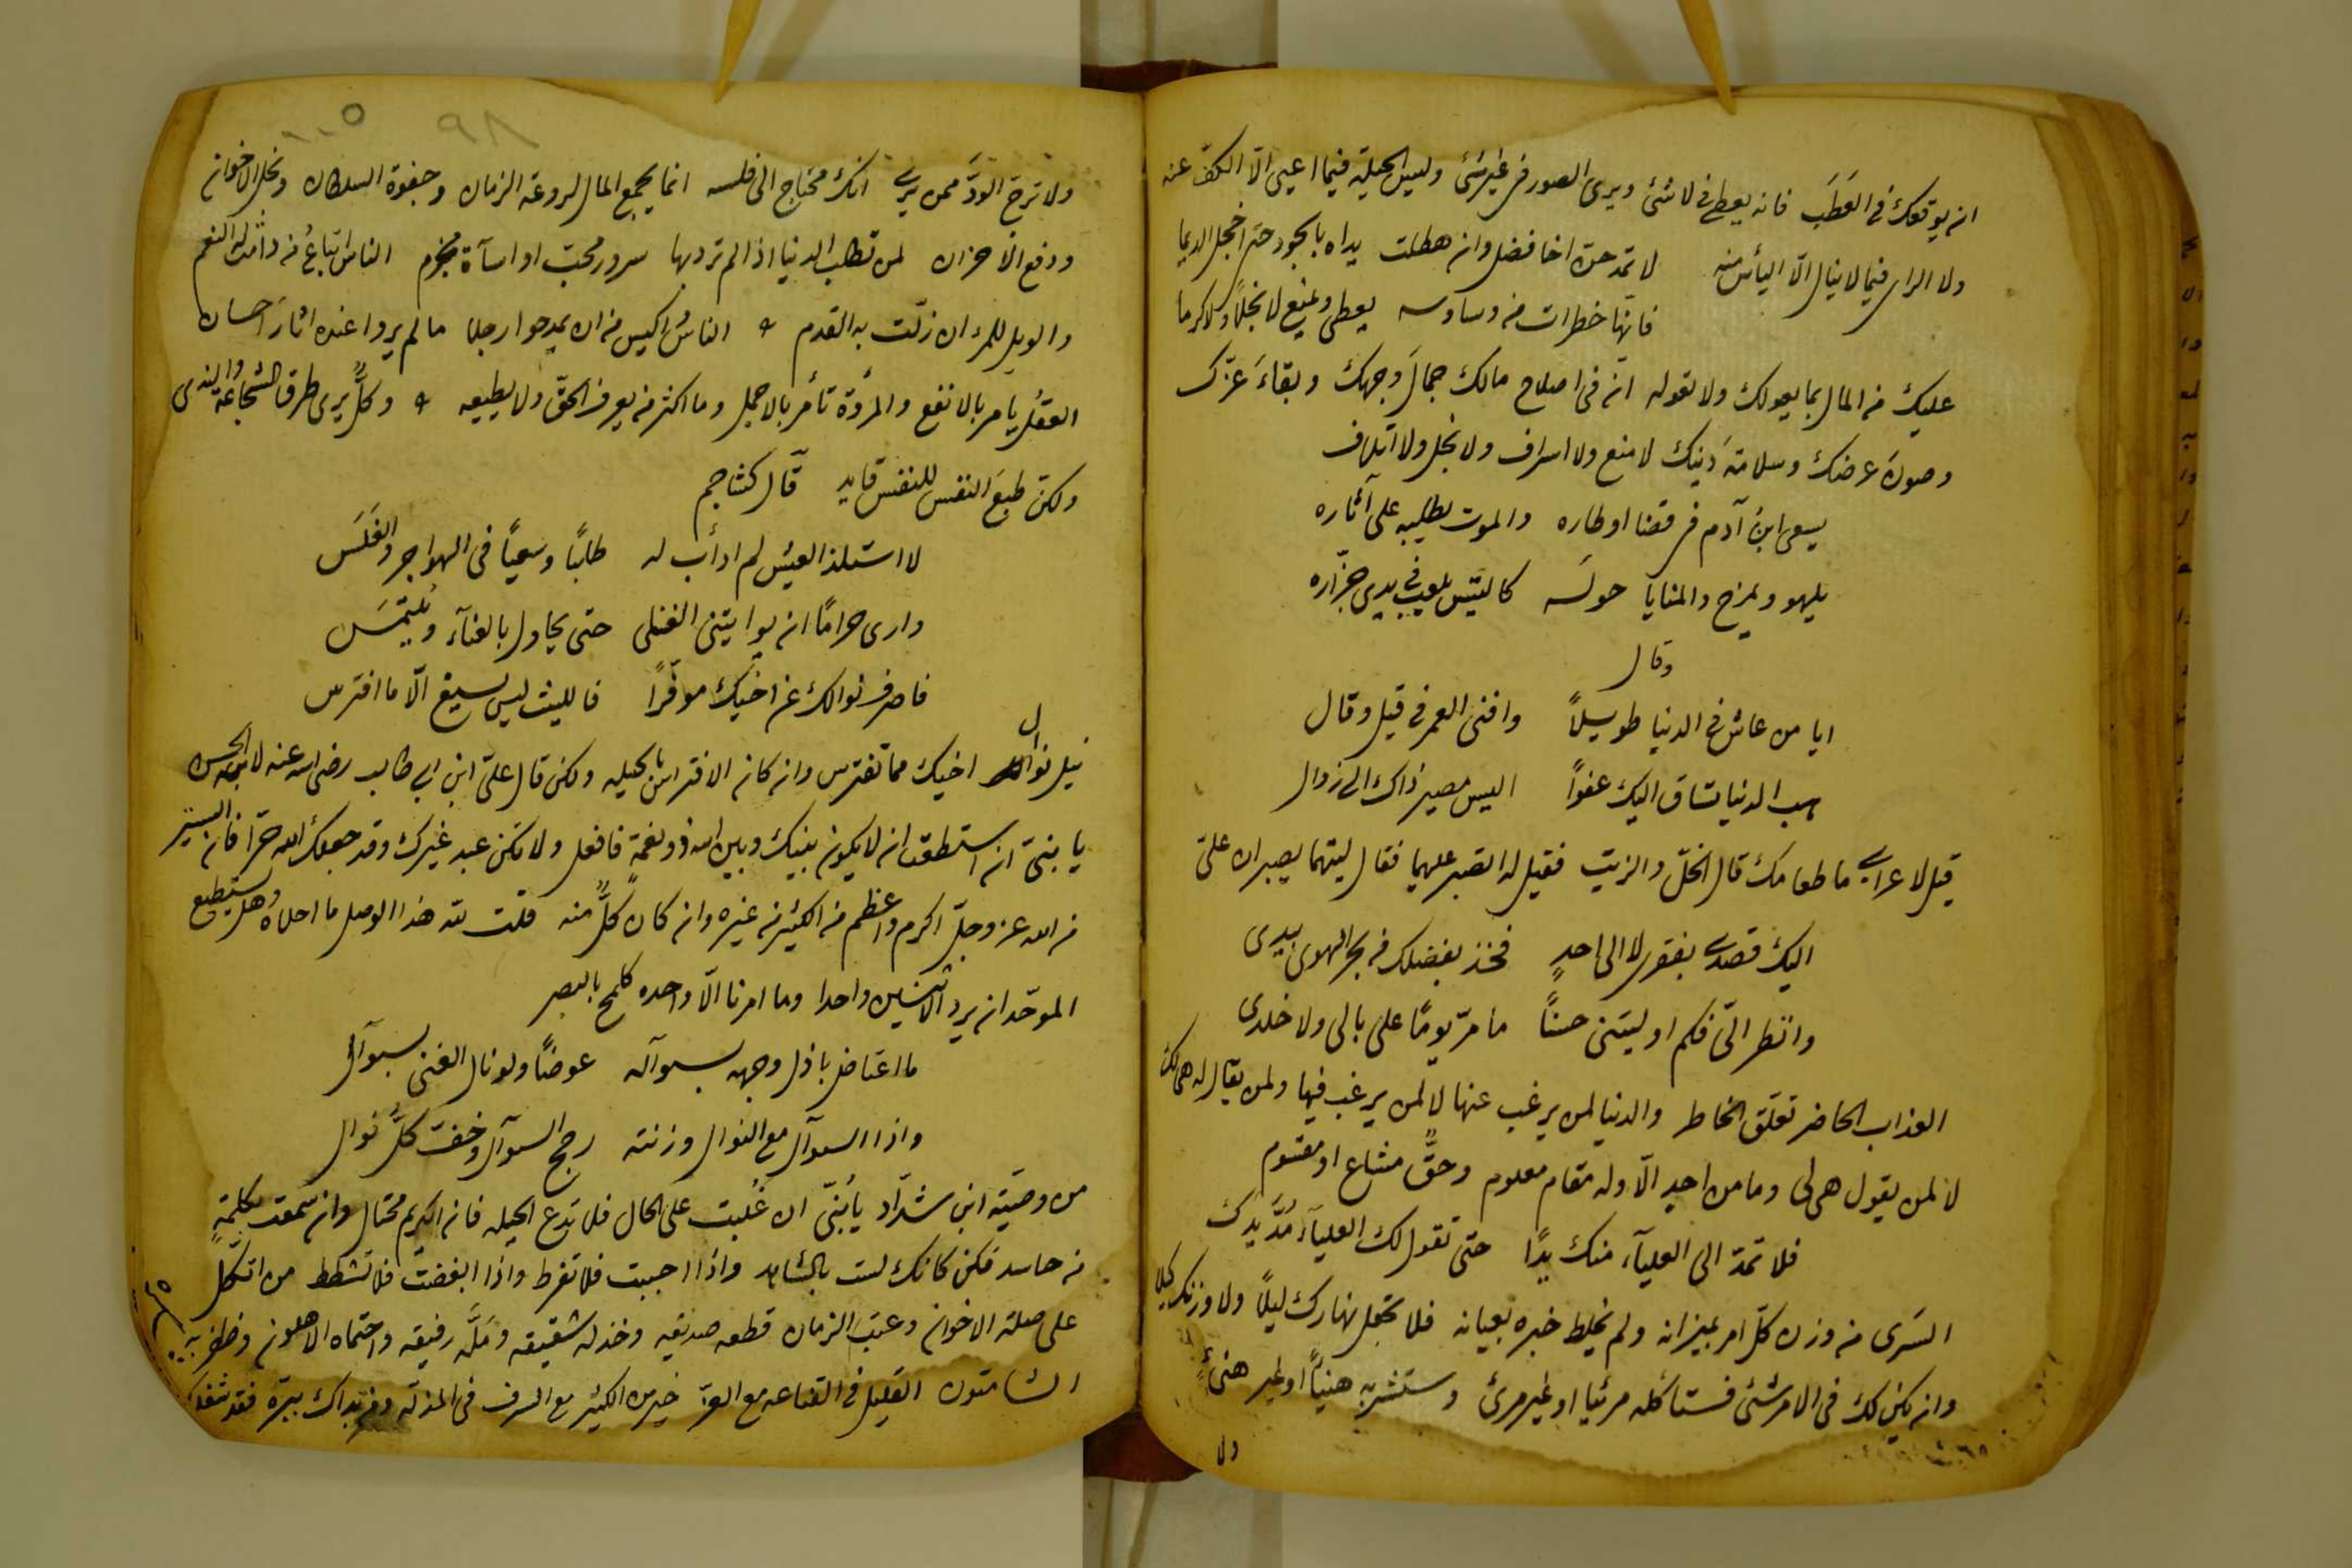 ان يوقعك فى العَطَب فانه يعطى فى لا شئ ويرى الصور فى غير شئ وليس الحيلة فيما اعيى الّا الكفّ عنه
ولا الراى فيما لا ينال الّا اليأس منه لا تمدحنّ اخا فضل وان هطلت يداه بالجود حتى اخجل الديما
فانّها خطرات من وساوسه يعطى ويمنع لا بخلًا ولا كرما
عليك من المال بما يعولك ولا تعوله انّ فى اصلاح مالك جمالَ وجهك وبقاءَ عزّك
وصونَ عرضك وسلامةَ دينك لا منع ولا اسراف ولا بخل ولا اتلاف
يسعى ابنُ آدم فى قضا اوطاره والموت يطلبه على آثاره
يلهو ويمرح والمنايا حوله كالتيس يلعب فى يدى جزّاره
وقال
ايا من عاش فى الدنيا طويلًا وافنى العمر فى قيل وقال
هب الدنيا تساق اليك عفوًا اليس مصير ذاك الى زوال
قيل لاعرابى ما طعامك قال الخلّ والزيت فقيل له اتصبر عليهما فقال ليتهما يصبران علىّ
اليك قصدى بفقرى لا الى احدٍ فخذ بفضلك من بحر الهوى بيدى
وانظر الىّ فكم اوليتنى حسنًا ما مرّ يومًا على بالى ولا خلدى
العذاب الحاضر تعلّق الخاطر والدنيا لمن يرغب عنها لا لمن يرغب فيها ولمن يقال له هى لك
لا لمن يقول هى لى وما من احدٍ الّا وله مقام معلوم وحقٌّ مشاع او مقسوم
فلا تمدّ الى العلياَء منك يدًا حتى تقول لك العلياَء مُدَّ يدك
السَرى من وزن كلّ امر بميزانه ولم يخلط خبره بعيانه فلا تجعل نهارك ليلًا ولا وزنك كيلا
وان يكن لك فى الامر شئ فستأكله مرئيا او غير مرئ وستشربه هنيًا او غير هنئ
ولا
٩٨ ١٠٥
ولا ترجَ الودَّ ممن يرى انك محتاج الى فلسه انما يجمع المال لروعة الزمان وجفوة السلطان وبخل الاخوان
ودفع الاحزان لمن تطلب الدنيا اذا لم ترد بها سرور محبّ او اسآة مجرم الناس اتباعُ من دامت له النعم
والويل للمرء ان زلّت به القدم الناسُ اكيس من ان يمدحوا رجلا ما لم يروا عنده اثارَ احسان
العقلُ يامر بالانفع والمروّة تأمر بالاجمل وما اكثر من يعرف الحقّ ولا يطيعه وكلٌّ يرى طرق الشجاعة والندى
ولكنّ طبعَ النفس للنفس قايد قال كشاجم
لا استلذ العيش لم ادأب له طلبًا وسعيًا فى الهواجر والغَلَس
وارى حرامًا ان يواتينى الغنى حتى يحاول بالعناَء ويُلتمَس
فاصرف نوالك عن اخيك موفّرًا فالليث ليس يسيغ الّا ما افترس
نيل نوال اخيك مما تفترس وان كان الافتراس بالحيله ولكن قال علىّ ابن ابى طالب رضى الله عنه لابنه الحسن
يا بنىّ ان استطعت ان لا يكون بينك وبين الله ذو نعمةٍ فافعل ولا تكن عبد غيرك وقد جعلك الله حرّا فان اليسير
من الله عز وجلّ اكرم واعظم من الكثير من غيره وان كان كلٌّ منه قلت لله هذا الوصل ما احلاه وهل يستطيع
الموحّد ان يرد الاثنين واحدا وما امرنا الّا واحده كلمح بالبصر
ما اعتاض باذل وجهه بسوآله عوضًا ولو نال الغنى بسوآل
واذا السوآل مع النوال وزنته رجح السوآل وخفّ كلُّ نوال
من وصيّة ابن شدّاد يا بُنىّ ان غُلبت على الحال فلا تدع الحيله فان الكريم محتال وان سمعت بكلمةٍ
من حاسد فكن كانك لست بالشاهد واذا احببت فلا تفرط واذا ابغضت فلا تشطط من اتكل
على صلة الاخوان وعتب الزمان قطعه صديقه وخذله شقيقه ومَلّه رفيقه واحتماه الاهلون وظفر به
الشامتون القليل فى القناعه مع العزّ خير من الكثير مع السرف فى المذلّه ومن بداك ببرّه فقد شغلك